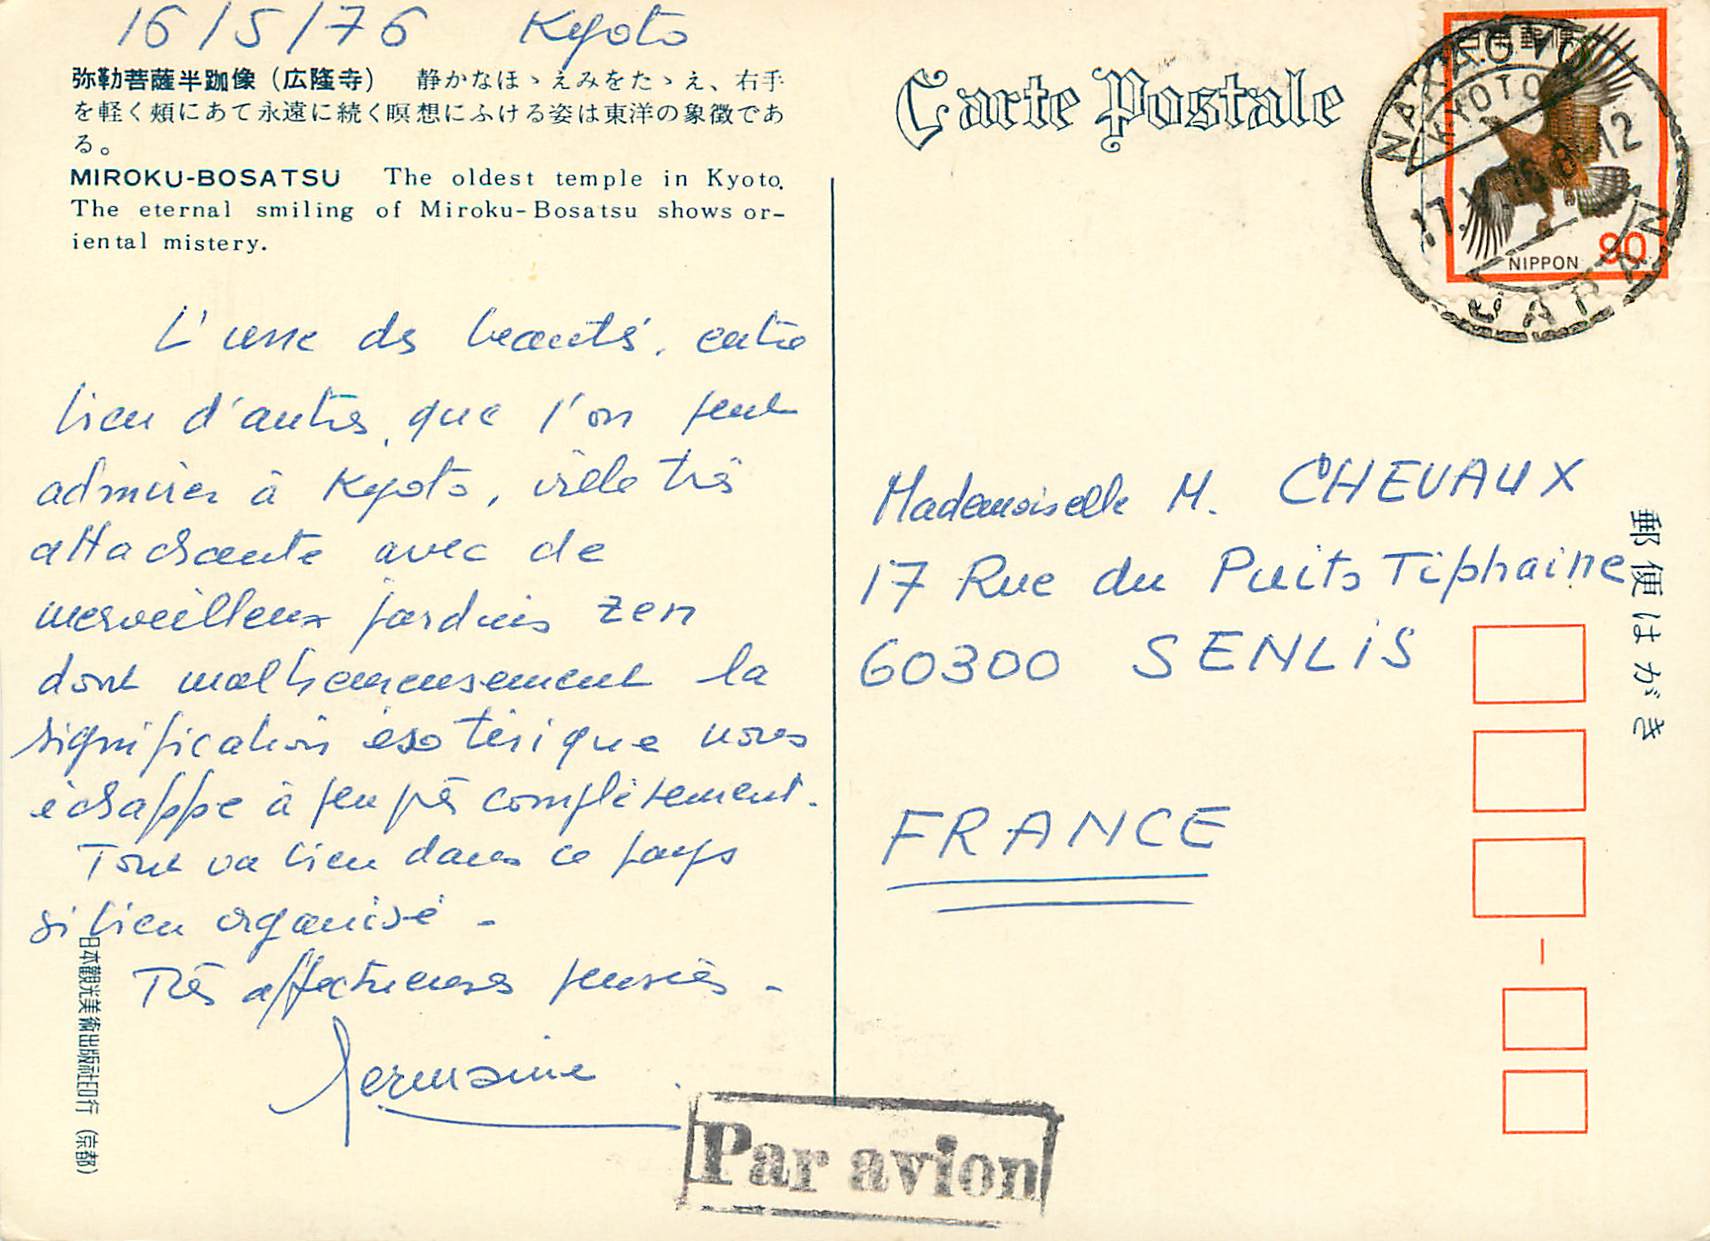 16/5/76 Kyoto
弥勒菩薩半跏像（広隆寺） 静かなほゝえみをたゝえ、右手
を軽く頬にあて永遠に続く瞑想にふける姿は東洋の象徴であ
る。
MIROKU-BOSATSU The oldest temple in Kyoto.
The eternal smiling of Miroku-Bosatsu shows or-
iental mistery.
L'une des beautés, entre
bien d'autres, que l'on peut
admirer à Kyoto, ville très
attachante avec de
merveilleux jardins zen
dont malheureusement la
signification ésotérique nous
échappe à peu près complètement.
Tout va bien dans ce pays
si bien organisé -
Très affectueuses pensées -
Germaine
日本觀光美術出版社印行 (京都)
Carte Postale
日本郵便
NIPPON 90
NAKAGYO
KYOTO
17.V.76 8-12
JAPAN
Mademoiselle M. CHEVAUX
17 Rue du Puits Tiphaine
60300 SENLIS
FRANCE
郵便はがき
Par avion